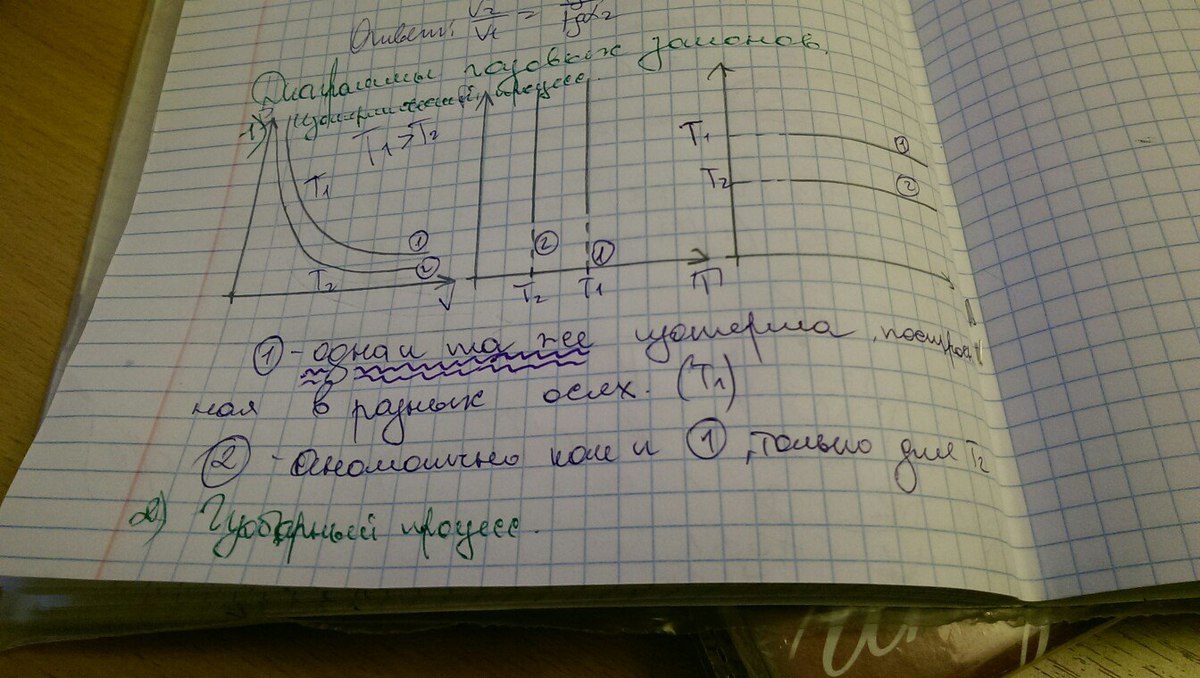 Ответ: V₂/V₁ = tgα₂
Диаграммы газовых законов.
1) Изотермический процесс.
T₁ > T₂
T₁
T₂
① ②
V
② ①
T₂ T₁ T
T₁ ①
T₂ ②
① - одна и та же изотерма, построен
ная в разных осях. (T₁)
② - Аномошично как и ①, только для T₂
2) Изобарный процесс.